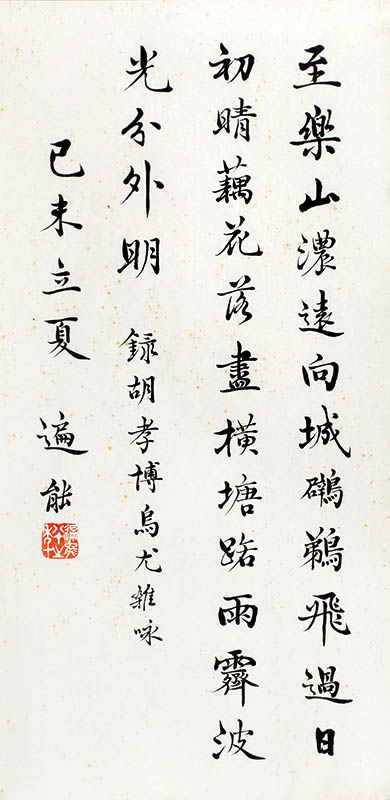 至樂山濃遠向城鵜飛過日
初晴藕花落盡橫塘路雨霽波
光分外明 錄胡孝博烏尤雜咏
己未立夏 遍能